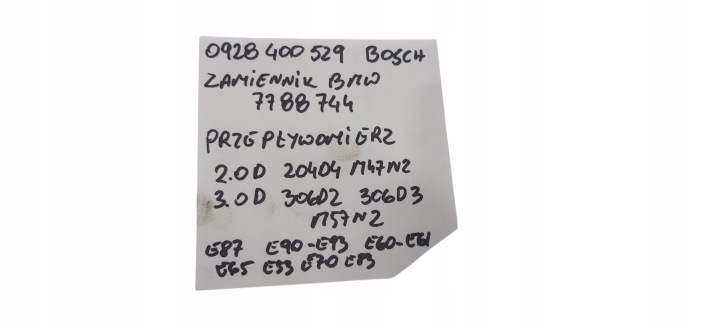 0928 400 529 BOSCH
ZAMIENNIK BMW
7788744
PRZEPŁYWOMIERZ
2.0D 204D4 M47N2
3.0D 306D2 306D3
M57N2
E87 E90-E93 E60-E61
E65 E53 E70 E83